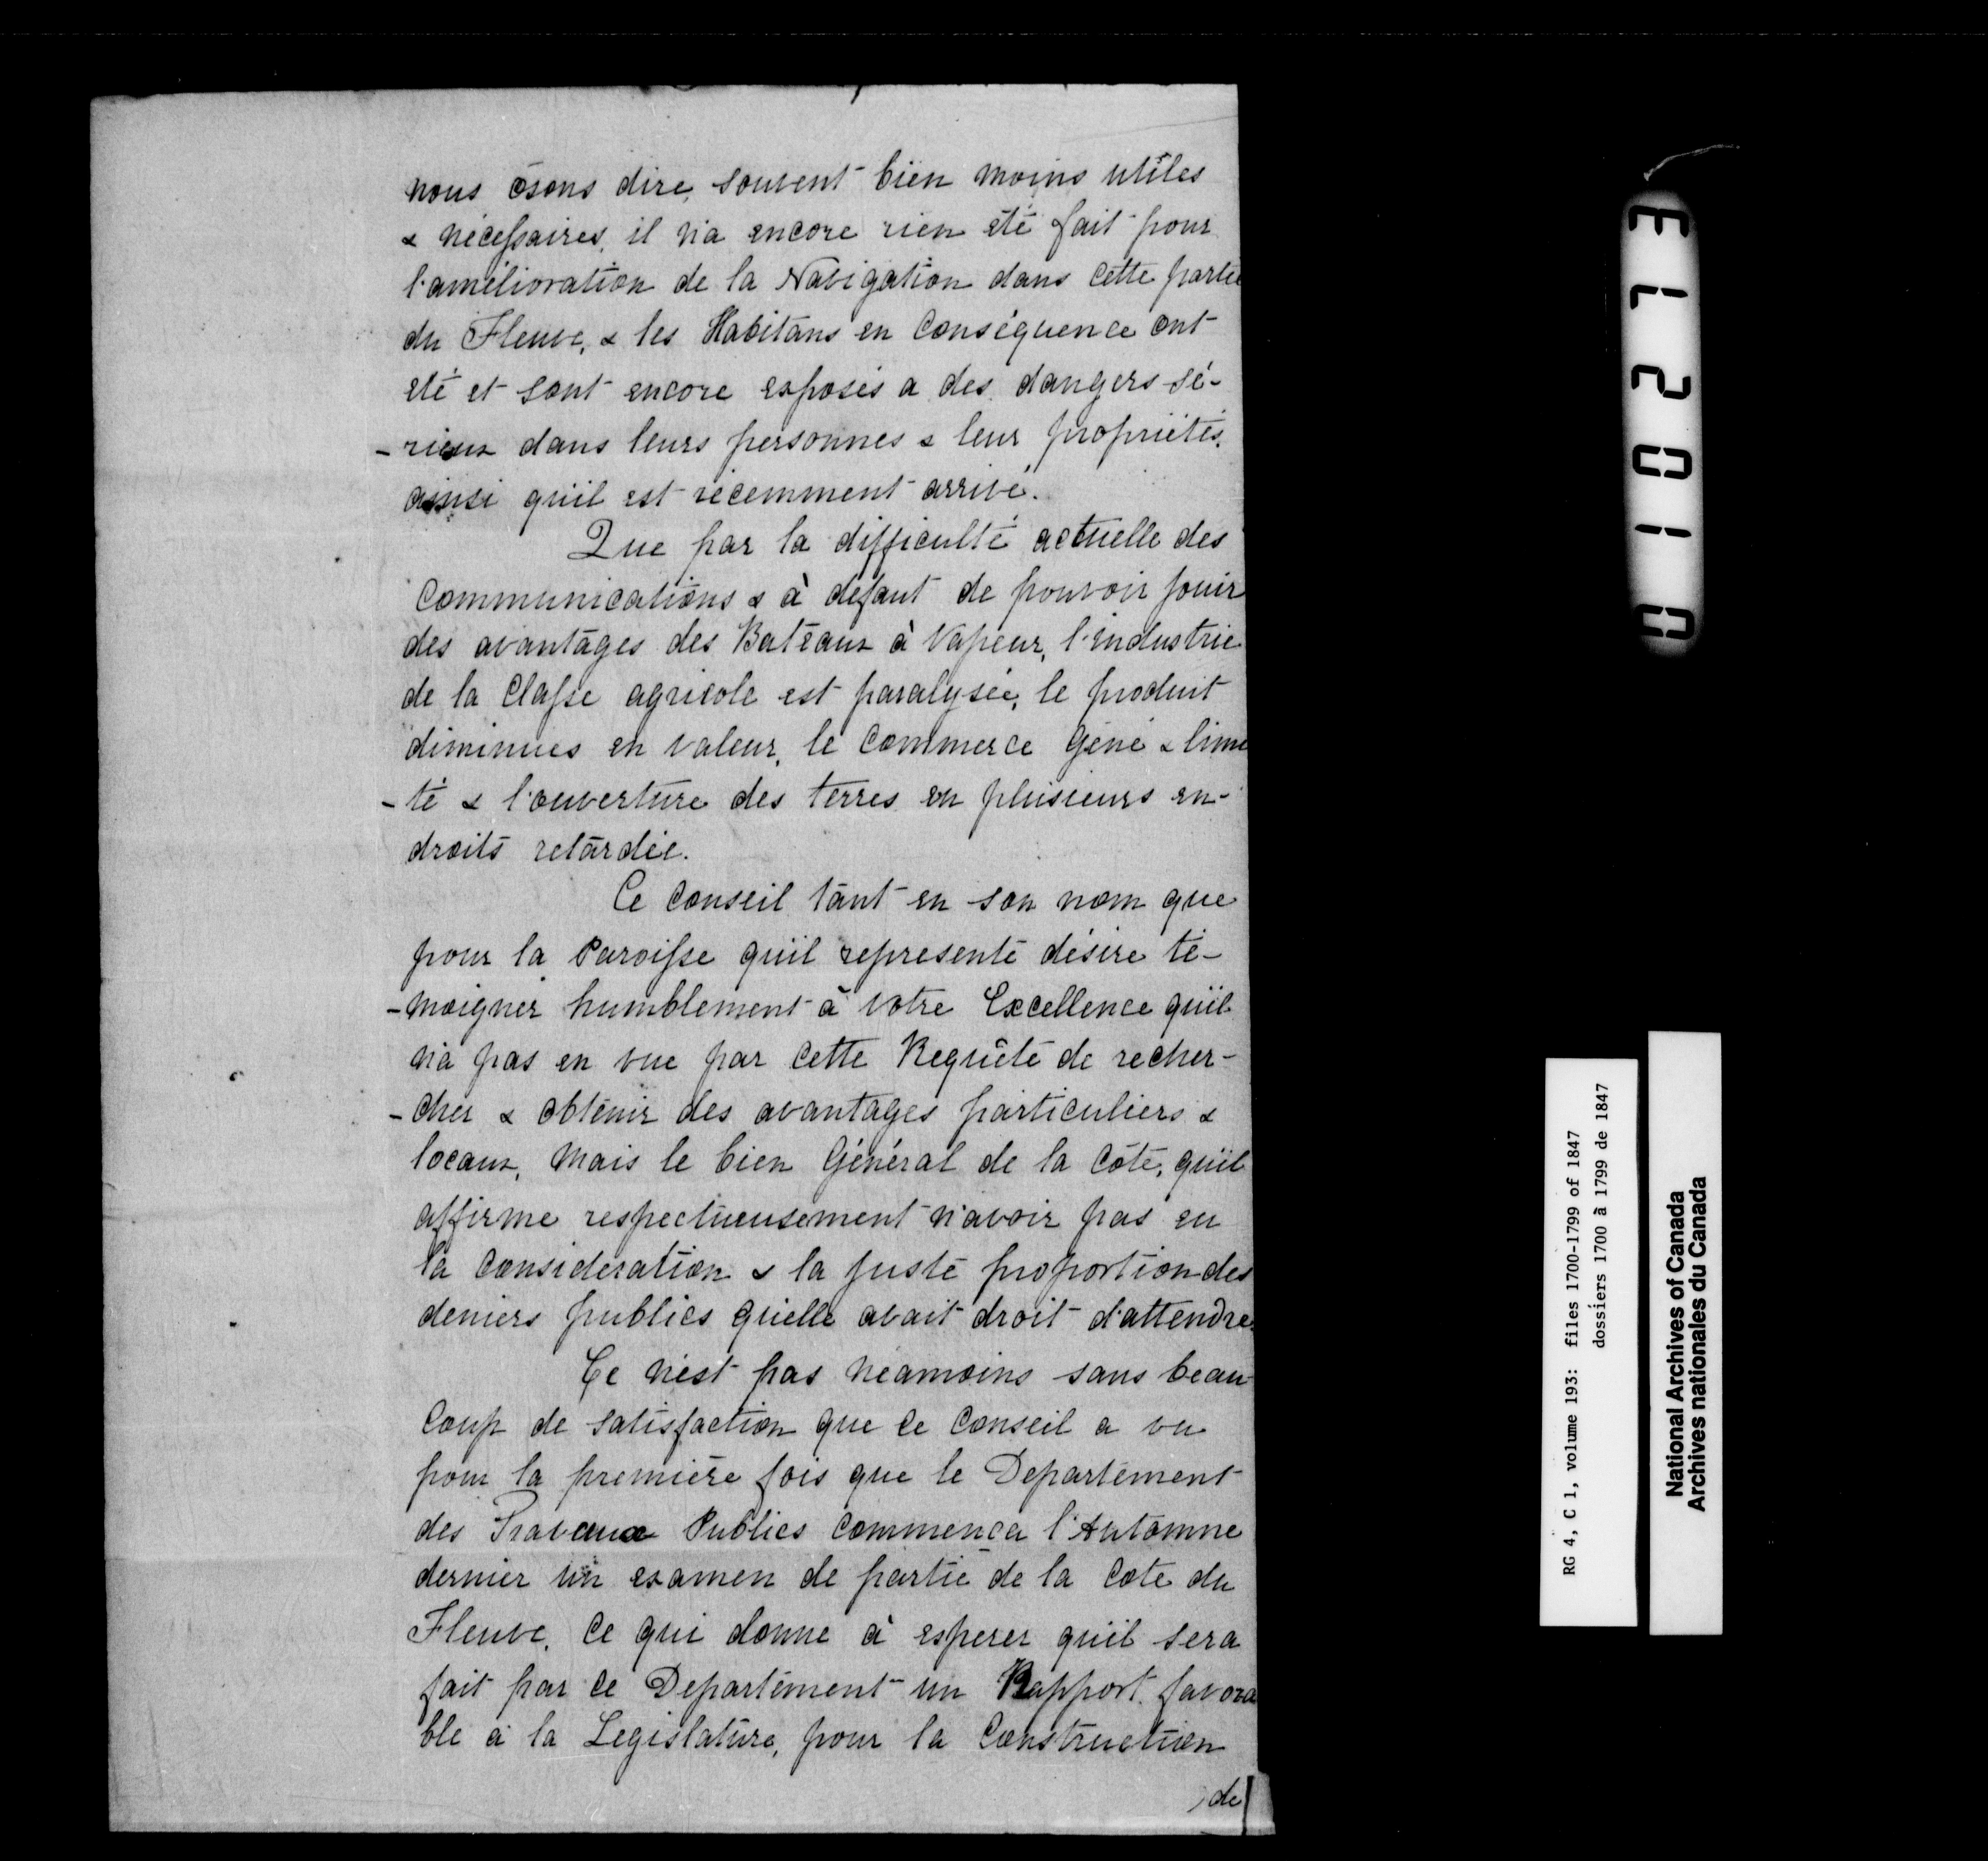 nous osons dire, souvent bien moins utiles
& nécessaires, il n'a encore rien été fait pour
l'amélioration de la Navigation dans cette partie
du Fleuve, & les Habitans en Conséquence ont
été et sont encore exposés a des dangers sé-
-rieux dans leurs personnes & leur propriétés,
ainsi qu'il est récemment arrivé.
Que par la difficulté actuelle des
Communications & à défaut de pouvoir jouir
des avantages des Bateaux à Vapeur, l'industrie
de la Classe agricole est paralysée, le produit
diminues en valeur, le Commerce Géné & limi
-té & l'ouverture des terres en plusieurs en-
droits retardée.
Ce Conseil tant en son nom que
pour la Paroisse qu'il represente désire té-
-moigner humblement à Votre Excellence qu'il
n'a pas en vue par cette Requête de recher-
-cher & obtenir des avantages particuliers &
locaux, Mais le bien Général de la Côte, qu'il
affirme respectueusement n'avoir pas eu
la Consideration & la juste proportion des
deniers publics qu'elle avait droit d'attendre.
Ce n'est pas néamoins sans beau
Coup de satisfaction que ce Conseil a vu
pour la première fois que le Departement
des Travaux Publics Commença l'Automne
dernier un examen de partie de la Cote du
Fleuve, Ce qui donne à esperer qu'il sera
fait par ce Departement un Rapport favora
ble à la Legislature, pour la Construction
de
010273
RG 4, C 1, volume 193: files 1700-1799 of 1847
dossiers 1700 à 1799 de 1847
National Archives of Canada
Archives nationales du Canada